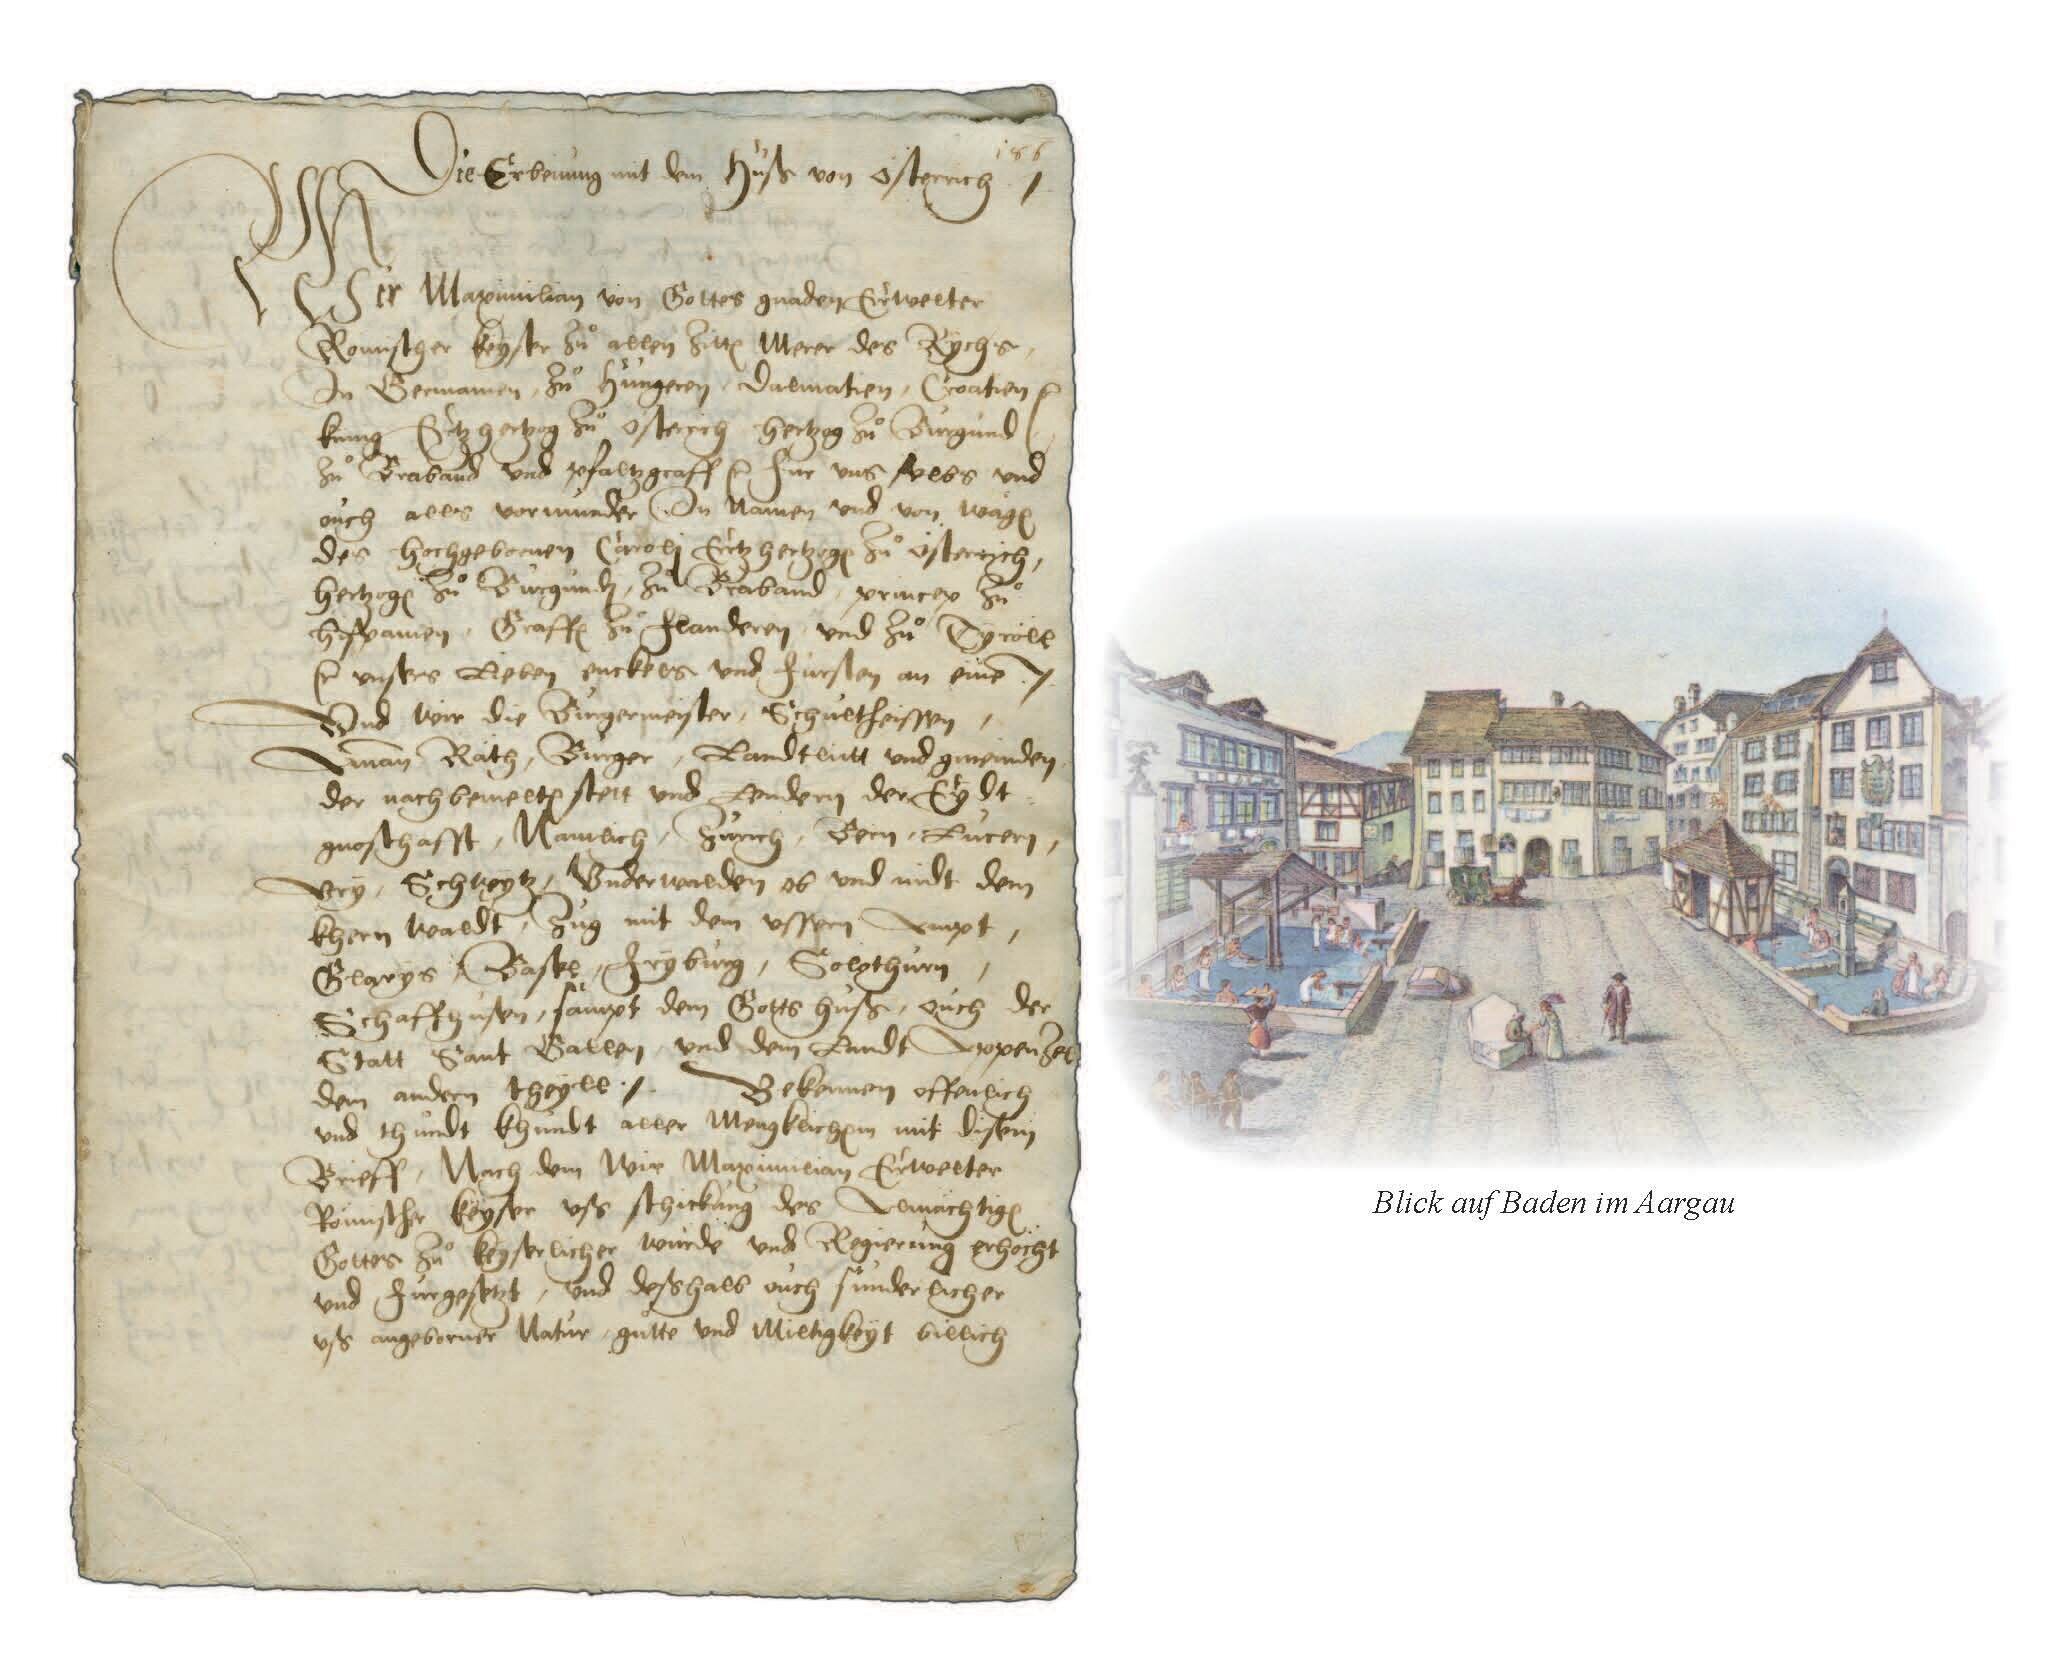 186
Die Erbeinung mit dem Huß von Osterrich
Wir Maximilian von Gottes gnaden Erwelter
Römischer keyser zů allen zitten Merer des Rychs,
In Germanien, zů Hungeren, Dalmatien, Croatien
kunig Ertzhertzog zů Osterrich hertzog zů Burgund
zů Braband vnd pfaltzgraff für vns selbs vnd
ouch alls vormunder In Namen vnd von wägen
des hochgebornen Caroli Ertzhertzogen zů Österrich,
hertzogen zů Burgundj, zů Braband, princep zů
hispanien, Graffen zů flanderen, vnd zů Tyroll
vnsers Lieben enckels vnd fürsten an eine
Vnd wir die Burgermeister, Schultheissen,
Aman Räth, Burger, Landtlütt vnd gmeinden
der nachbemelten stett vnd Lendern der Eydt
gnoschafft, Namlich, Zürich, Bern, Lucern,
Vry, Schwytz, Vnderwalden ob vnd nidt dem
khern waldt, Zug mit dem vssern Ampt,
Glarys, Basel, fryburg, Solothurn,
Schaffhusen, sampt dem Gotts huß, ouch der
Statt Sant Gallen, vnd dem Landt Appenzel
dem andern theyll. Bekennen offenlich
vnd thundt khundt aller Mengklichem mit disem
Brieff, Nach dem Wir Maximilian Erwelter
Römischer keyser vß schickung des Allmächtigen
Gottes zů keyserlicher würde vnd Regierung erhöcht
vnd fürgesetzt, vnd deßhalb ouch sunderlicher
vß angeborner Natur, gütte vnd Miltigkeyt billich
Blick auf Baden im Aargau